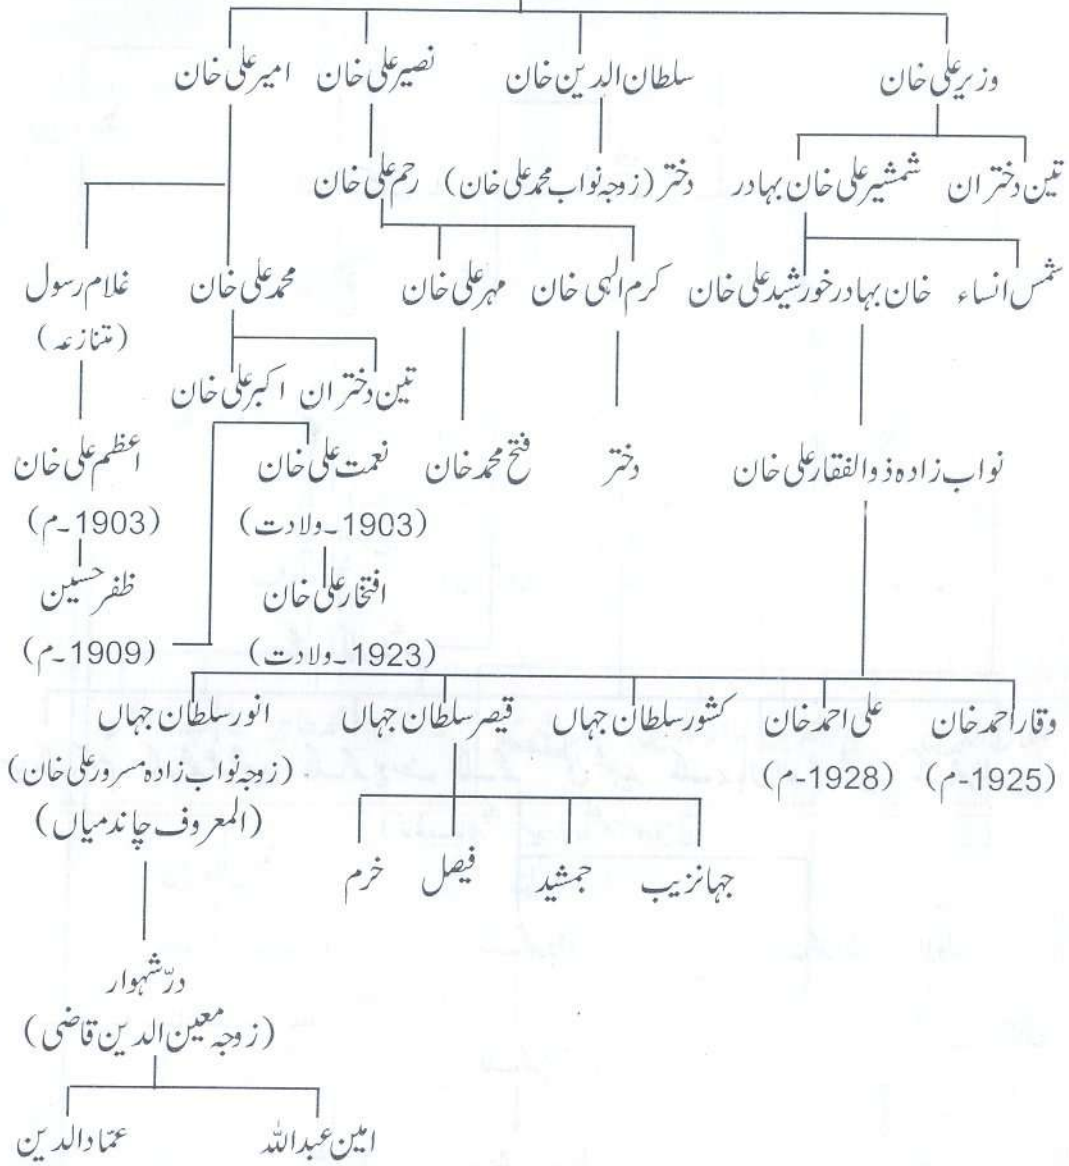 وزیر علی خان سلطان الدین خان نصیر علی خان امیر علی خان
تین دختران شمشیر علی خان بہادر دختر (زوجہ نواب محمد علی خان) رحم علی خان
شمس انساء خان بہادر خورشید علی خان کرم الٰہی خان مہر علی خان محمد علی خان غلام رسول
(متنازعہ)
تین دختران اکبر علی خان
نواب زادہ ذوالفقار علی خان دختر فتح محمد خان نعمت علی خان اعظم علی خان
(1903۔ولادت) (1903۔م)
افتخار علی خان ظفر حسین
(1923۔ولادت) (1909۔م)
وقار احمد خان علی احمد خان کشور سلطان جہاں قیصر سلطان جہاں انور سلطان جہاں
(1925-م) (1928-م) (زوجہ نواب زادہ مسرور علی خان)
(المعروف چاند میاں)
جہانزیب جمشید فیصل خرم
درّ شہوار
(زوجہ معین الدین قاضی)
امین عبداللہ عمّاد الدین